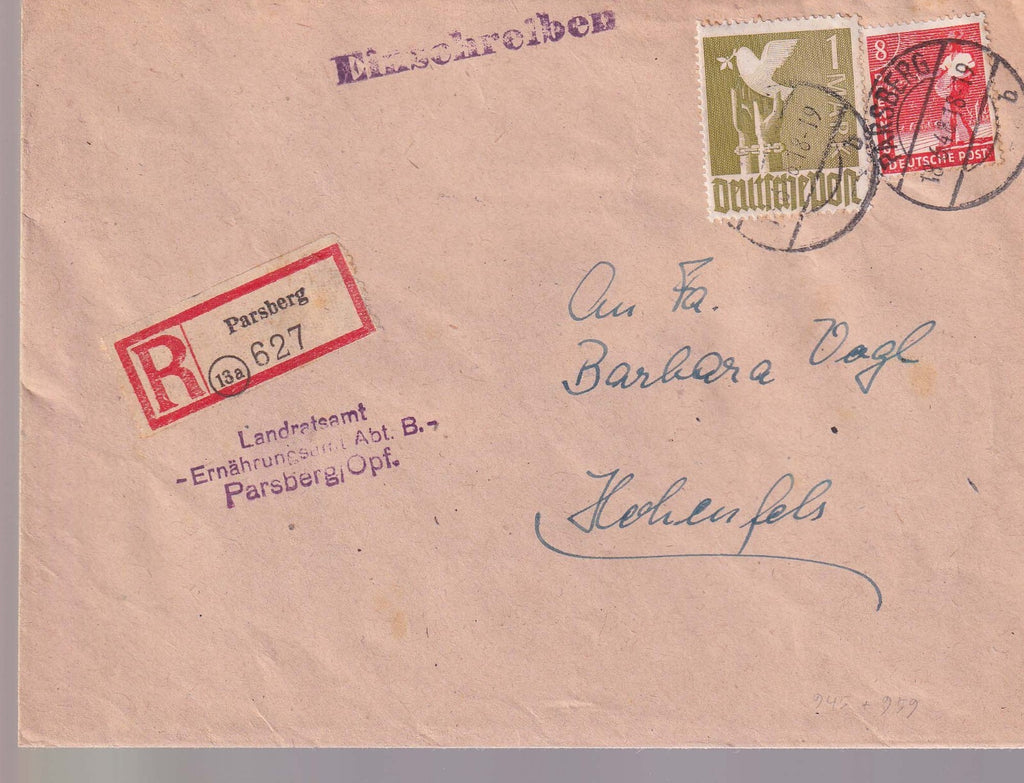 Einschreiben
1 MARK
DEUTSCHE POST
8
DEUTSCHE POST
PARSBERG
18-19
b
b
R
Parsberg
13a
627
Landratsamt
-Ernährungsamt Abt. B.-
Parsberg/Opf.
An Fa.
Barbara Vogl
Hohenfels
945 + 959